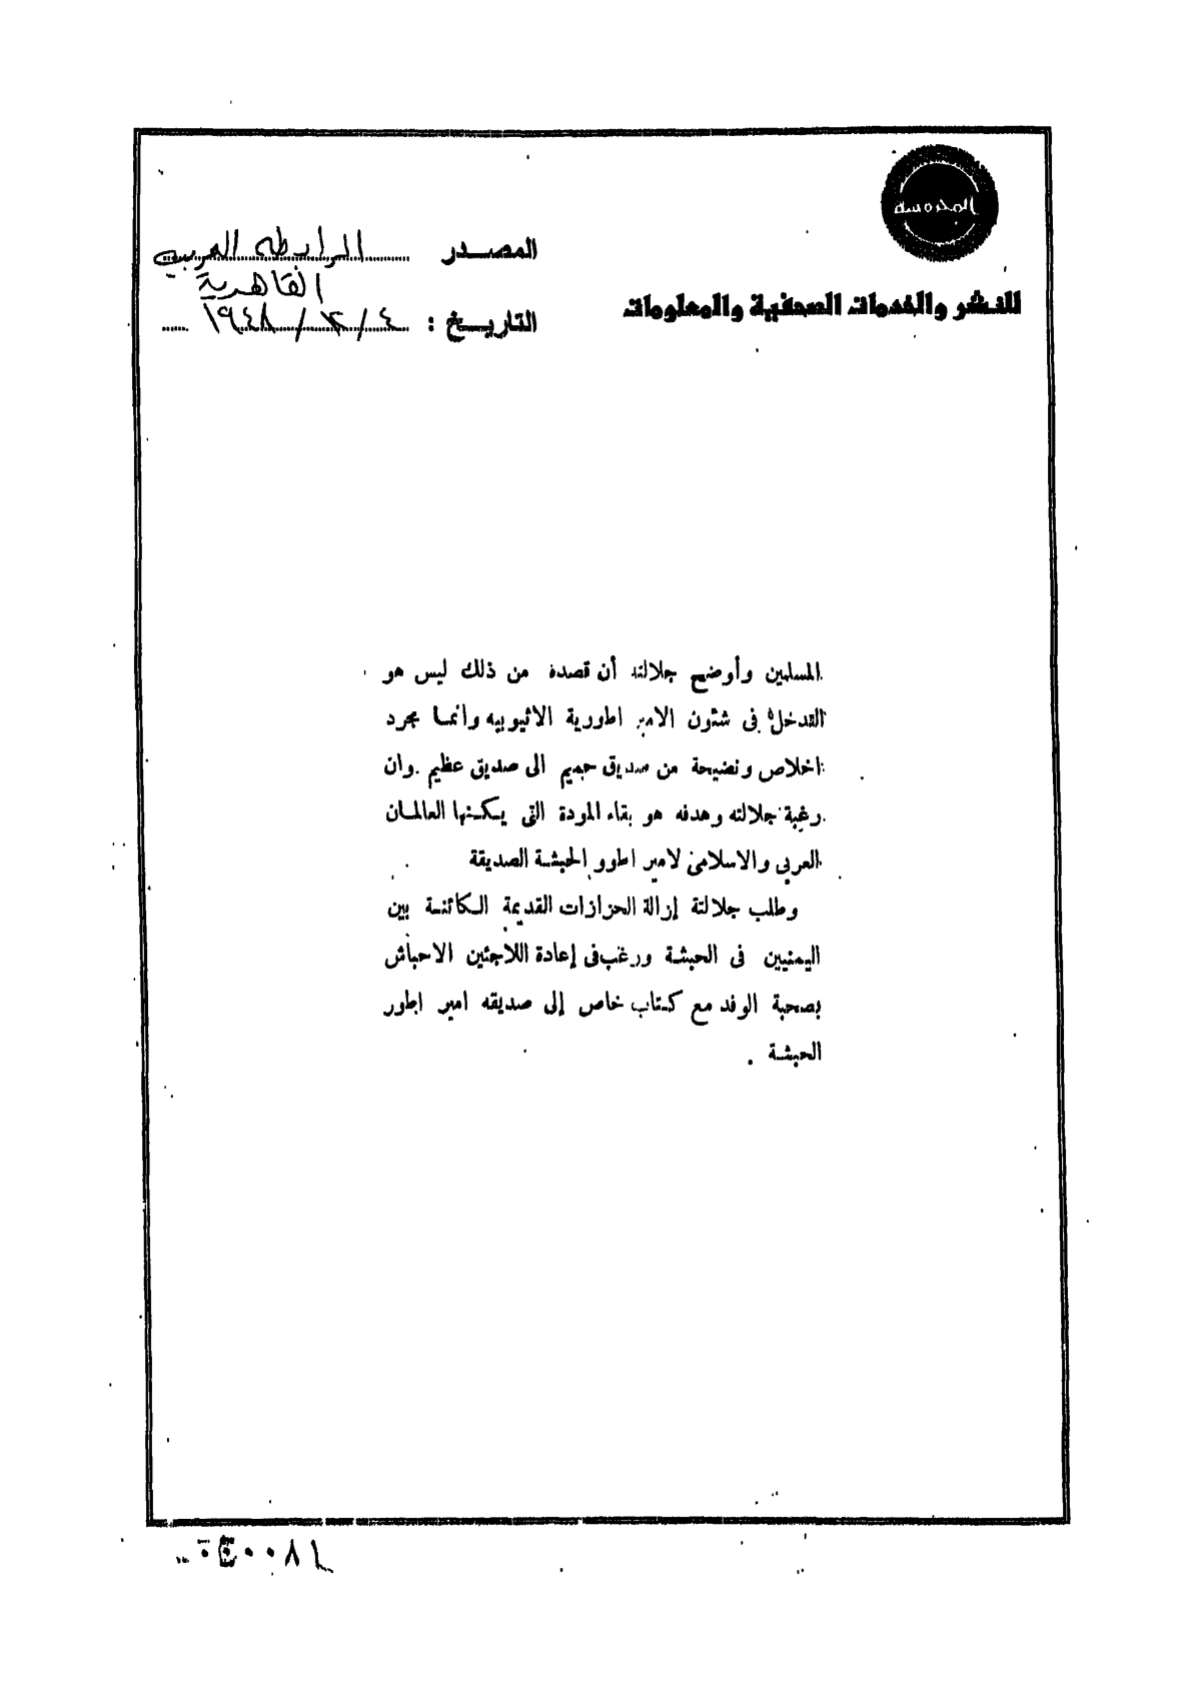 المحروسة
للنشر والخدمات الصحفية والمعلومات
المصدر الرابطه العربيه
القاهرية
التاريخ : ٤ / ٣ / ١٩٤٨
المسلمين وأوضح جلالته أن قصده من ذلك ليس هو
التدخل فى شئون الامبراطورية الاثيوبيه وانما مجرد
اخلاص ونصيحة من صديق حميم الى صديق عظيم . وان
رغبة جلالته وهدفه هو بقاء المودة التى يكنها العالمان
العربى والاسلامى لامبراطور الحبشة الصديقة
وطلب جلالتة إزالة الحزازات القديمة الكائنة بين
اليمنيين فى الحبشة ورغب فى إعادة اللاجئين الاحباش
بصحبة الوفد مع كتاب خاص إلى صديقه امبراطور
الحبشة .